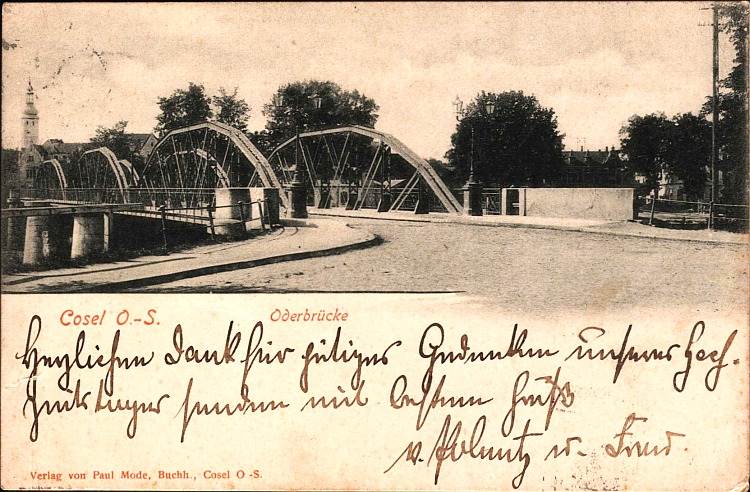 Cosel O.-S. Oderbrücke
Herzlichen Dank für gütiges Gedenken unseres Hoch-
zeitstages senden mit bestem Gruß
v. u. Frau.
Verlag von Paul Mode, Buchh., Cosel O-S.